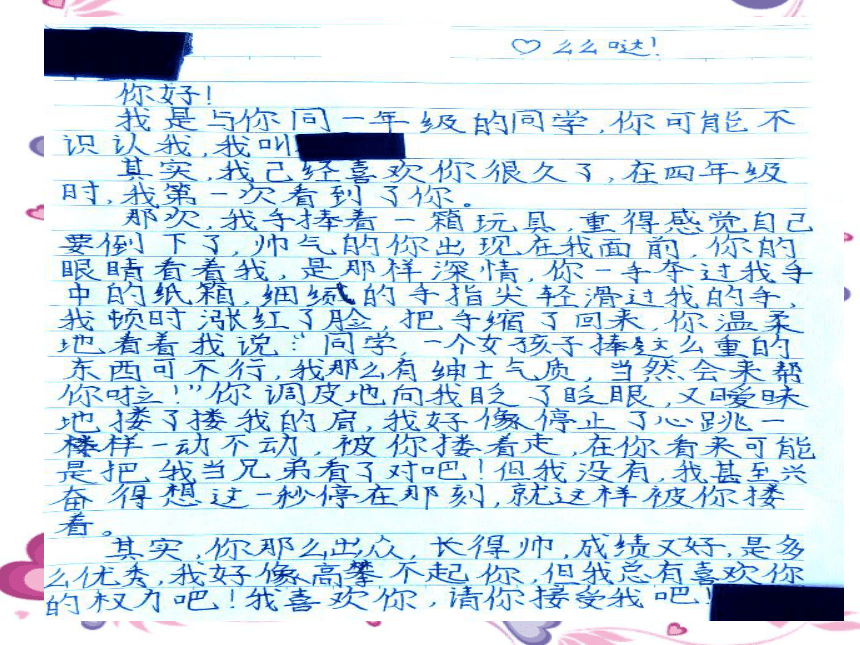 ♡ 么么哒!
你好!
我是与你同一年级的同学,你可能不
识认我,我叫
其实,我己经喜欢你很久了,在四年级
时,我第一次看到了你。
那次,我手捧着一箱玩具,重得感觉自己
要倒下了,帅气的你出现在我面前,你的
眼睛看着我,是那样深情,你一手夺过我手
中的纸箱,细绒的手指尖轻滑过我的手,
我顿时涨红了脸,把手缩了回来,你温柔
地看着我说:“同学,一个女孩子捧这么重的
东西可不行,我那么有绅士气质,当然会来帮
你啦!”你调皮地向我眨了眨眼,又暧昧
地搂了搂我的肩,我好像停止了心跳一
样一动不动,被你搂着走,在你看来可能
是把我当兄弟看了对吧!但我没有,我甚至兴
奋得想过一秒停在那刻,就这样被你搂
着。
其实,你那么出众,长得帅,成绩又好,是多
么优秀,我好像高攀不起你,但我总有喜欢你
的权力吧!我喜欢你,请你接受我吧!